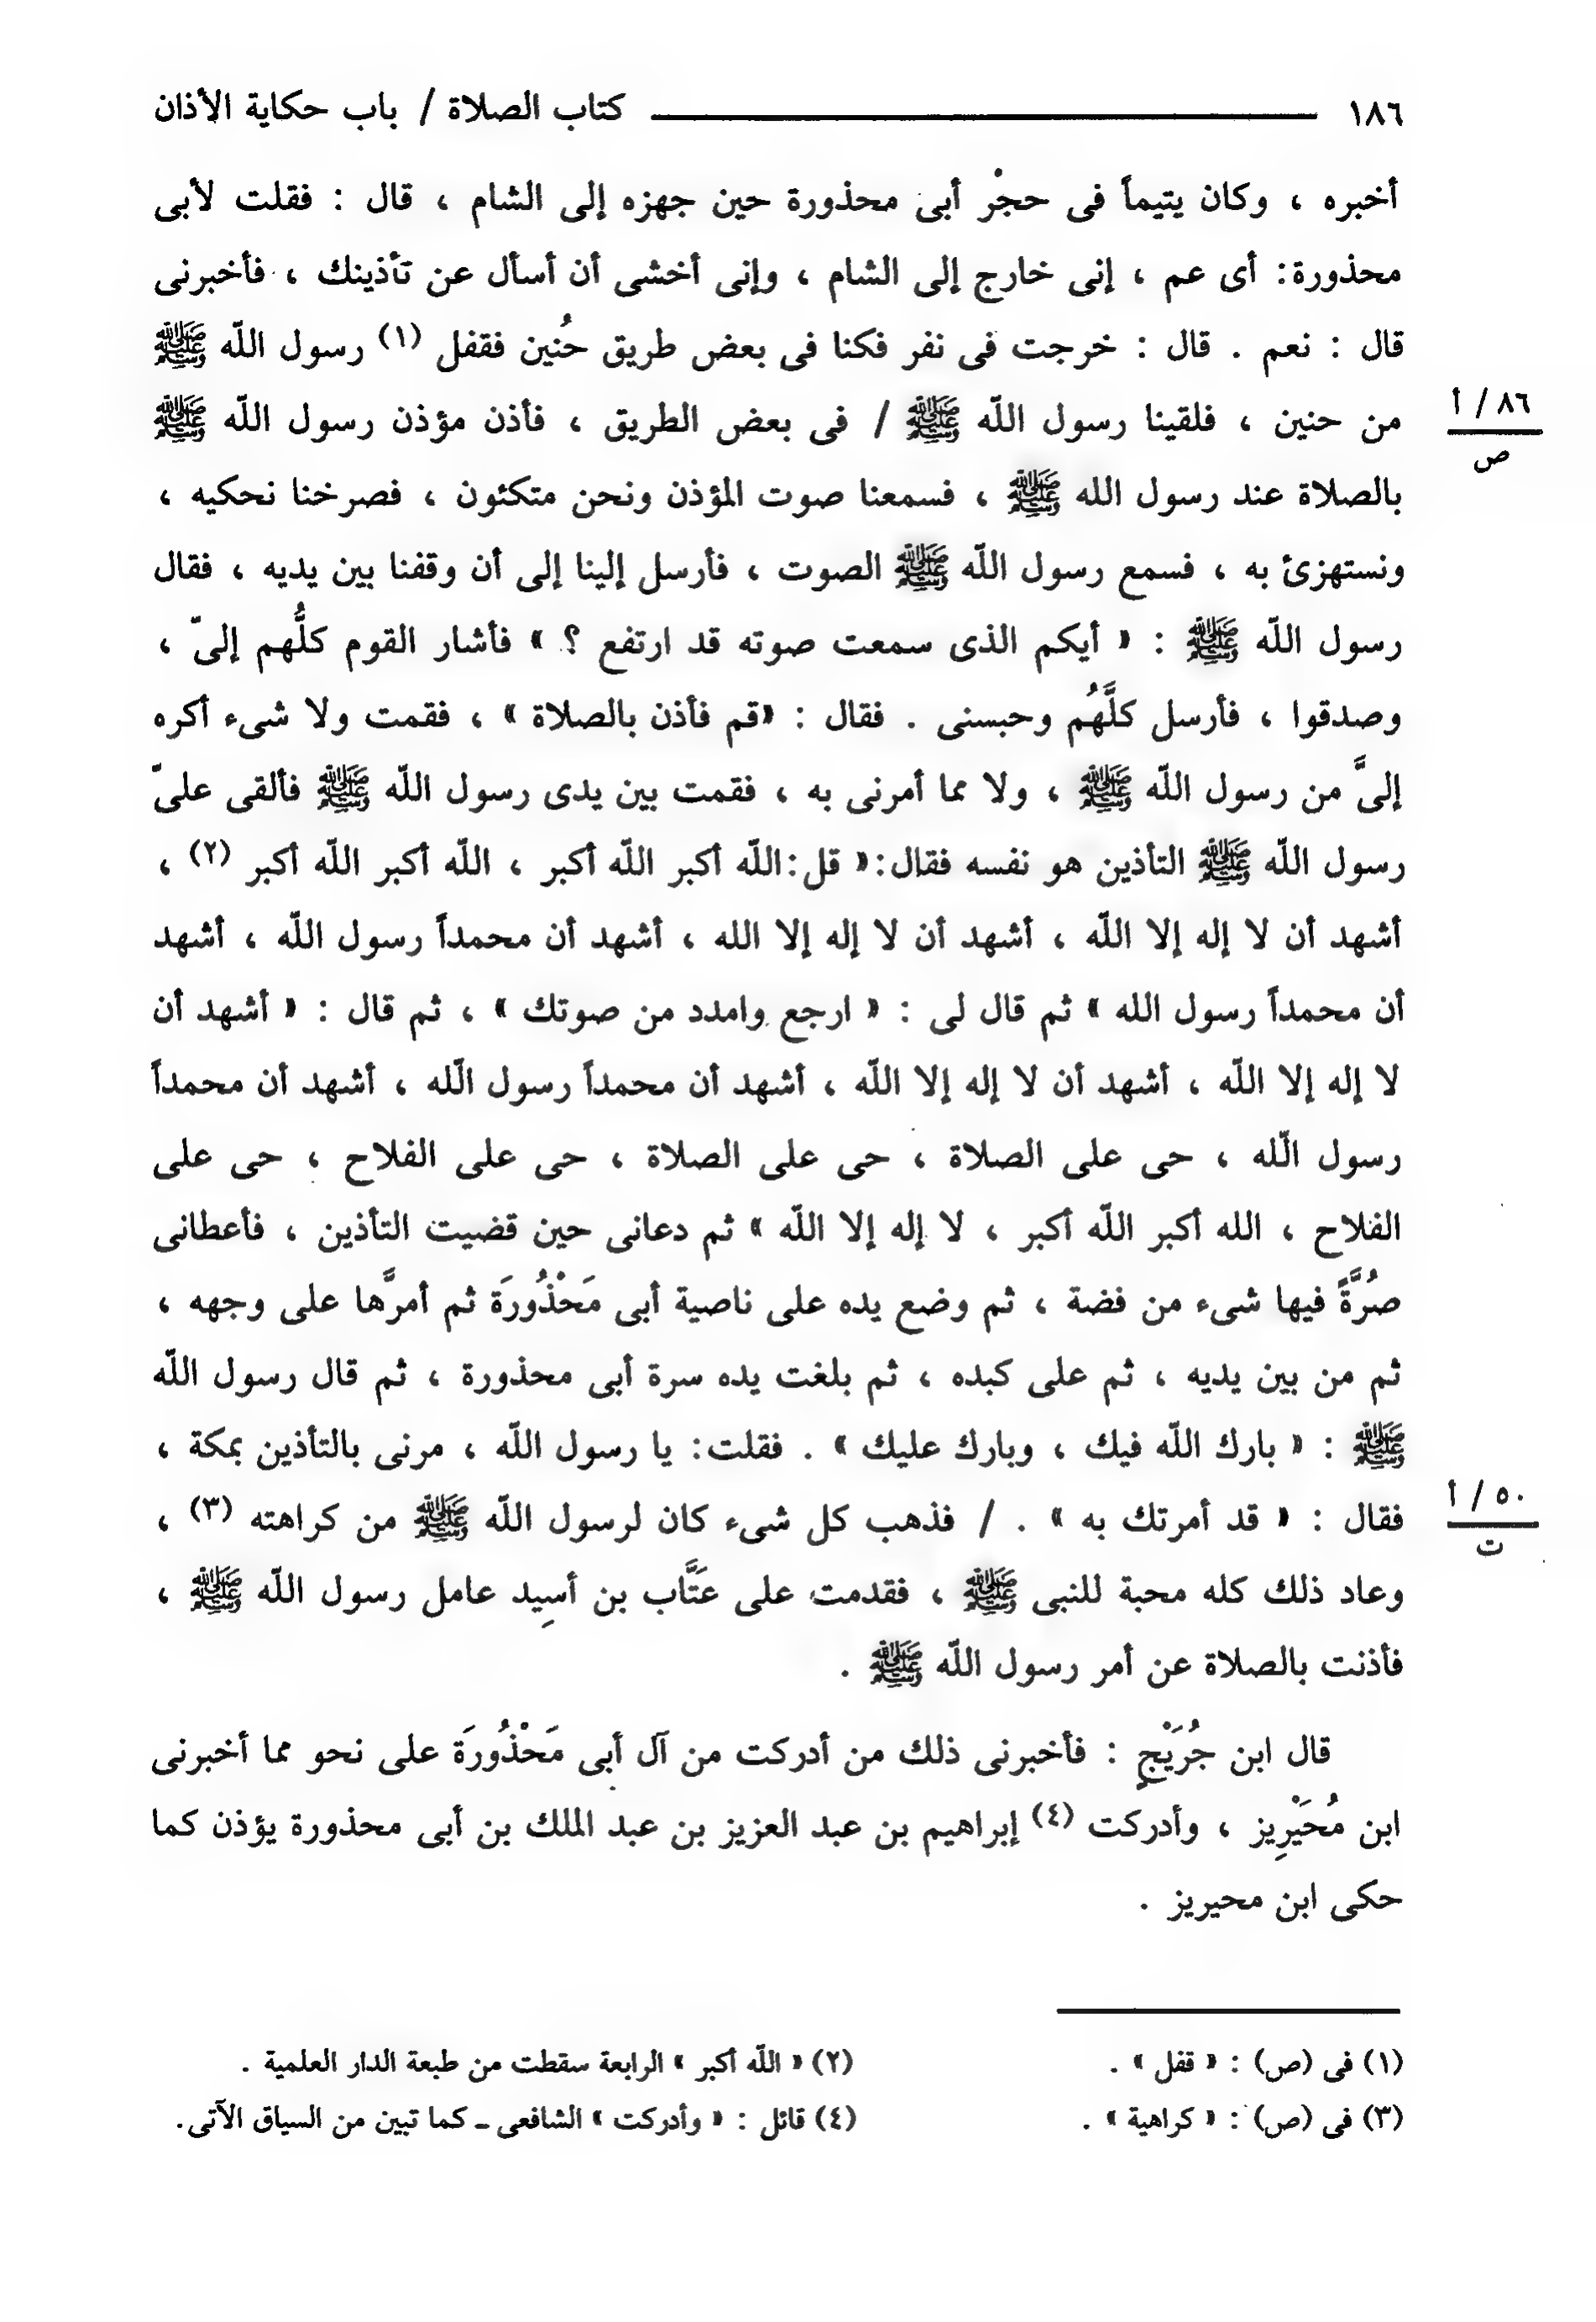 ١٨٦ كتاب الصلاة / باب حكاية الأذان
أخبره ، وكان يتيماً فى حجْر أبى محذورة حين جهزه إلى الشام ، قال : فقلت لأبى
محذورة: أى عم ، إنى خارج إلى الشام ، وإنى أخشى أن أسأل عن تأذينك ، فأخبرنى
قال : نعم . قال : خرجت فى نفر فكنا فى بعض طريق حُنين فقفل (١) رسول اللّه ﷺ
من حنين ، فلقينا رسول اللّه ﷺ / فى بعض الطريق ، فأذن مؤذن رسول اللّه ﷺ
٨٦ / أ
ص
بالصلاة عند رسول الله ﷺ ، فسمعنا صوت المؤذن ونحن متكئون ، فصرخنا نحكيه ،
ونستهزئ به ، فسمع رسول اللّه ﷺ الصوت ، فأرسل إلينا إلى أن وقفنا بين يديه ، فقال
رسول اللّه ﷺ : « أيكم الذى سمعت صوته قد ارتفع ؟ » فأشار القوم كلُّهم إلىّ ،
وصدقوا ، فأرسل كلَّهُم وحبسنى . فقال : «قم فأذن بالصلاة » ، فقمت ولا شىء أكره
إلىَّ من رسول اللّه ﷺ ، ولا مما أمرنى به ، فقمت بين يدى رسول اللّه ﷺ فألقى علىّ
رسول اللّه ﷺ التأذين هو نفسه فقال:« قل:اللّه أكبر اللّه أكبر ، اللّه أكبر اللّه أكبر (٢) ،
أشهد أن لا إله إلا اللّه ، أشهد أن لا إله إلا الله ، أشهد أن محمداً رسول اللّه ، أشهد
أن محمداً رسول الله » ثم قال لى : « ارجع وامدد من صوتك » ، ثم قال : « أشهد أن
لا إله إلا اللّه ، أشهد أن لا إله إلا اللّه ، أشهد أن محمداً رسول اللّه ، أشهد أن محمداً
رسول اللّه ، حى على الصلاة ، حى على الصلاة ، حى على الفلاح ، حى على
الفلاح ، الله أكبر اللّه أكبر ، لا إله إلا اللّه » ثم دعانى حين قضيت التأذين ، فأعطانى
صُرَّةً فيها شىء من فضة ، ثم وضع يده على ناصية أبى مَحْذُورَة ثم أمرَّها على وجهه ،
ثم من بين يديه ، ثم على كبده ، ثم بلغت يده سرة أبى محذورة ، ثم قال رسول اللّه
ﷺ : « بارك اللّه فيك ، وبارك عليك » . فقلت: يا رسول اللّه ، مرنى بالتأذين بمكة ،
فقال : « قد أمرتك به » . / فذهب كل شىء كان لرسول اللّه ﷺ من كراهته (٣) ،
٥٠ / أ
ت
وعاد ذلك كله محبة للنبى ﷺ ، فقدمت على عَتَّاب بن أسِيد عامل رسول اللّه ﷺ ،
فأذنت بالصلاة عن أمر رسول اللّه ﷺ .
قال ابن جُرَيْجٍ : فأخبرنى ذلك من أدركت من آل أبى مَحْذُورَة على نحو مما أخبرنى
ابن مُحَيْرِيز ، وأدركت (٤) إبراهيم بن عبد العزيز بن عبد الملك بن أبى محذورة يؤذن كما
حكى ابن محيريز .
(١) فى (ص) : « قفل » . (٢) « اللّه أكبر » الرابعة سقطت من طبعة الدار العلمية .
(٣) فى (ص) : « كراهية » . (٤) قائل : « وأدركت » الشافعى ـ كما تبين من السياق الآتى.